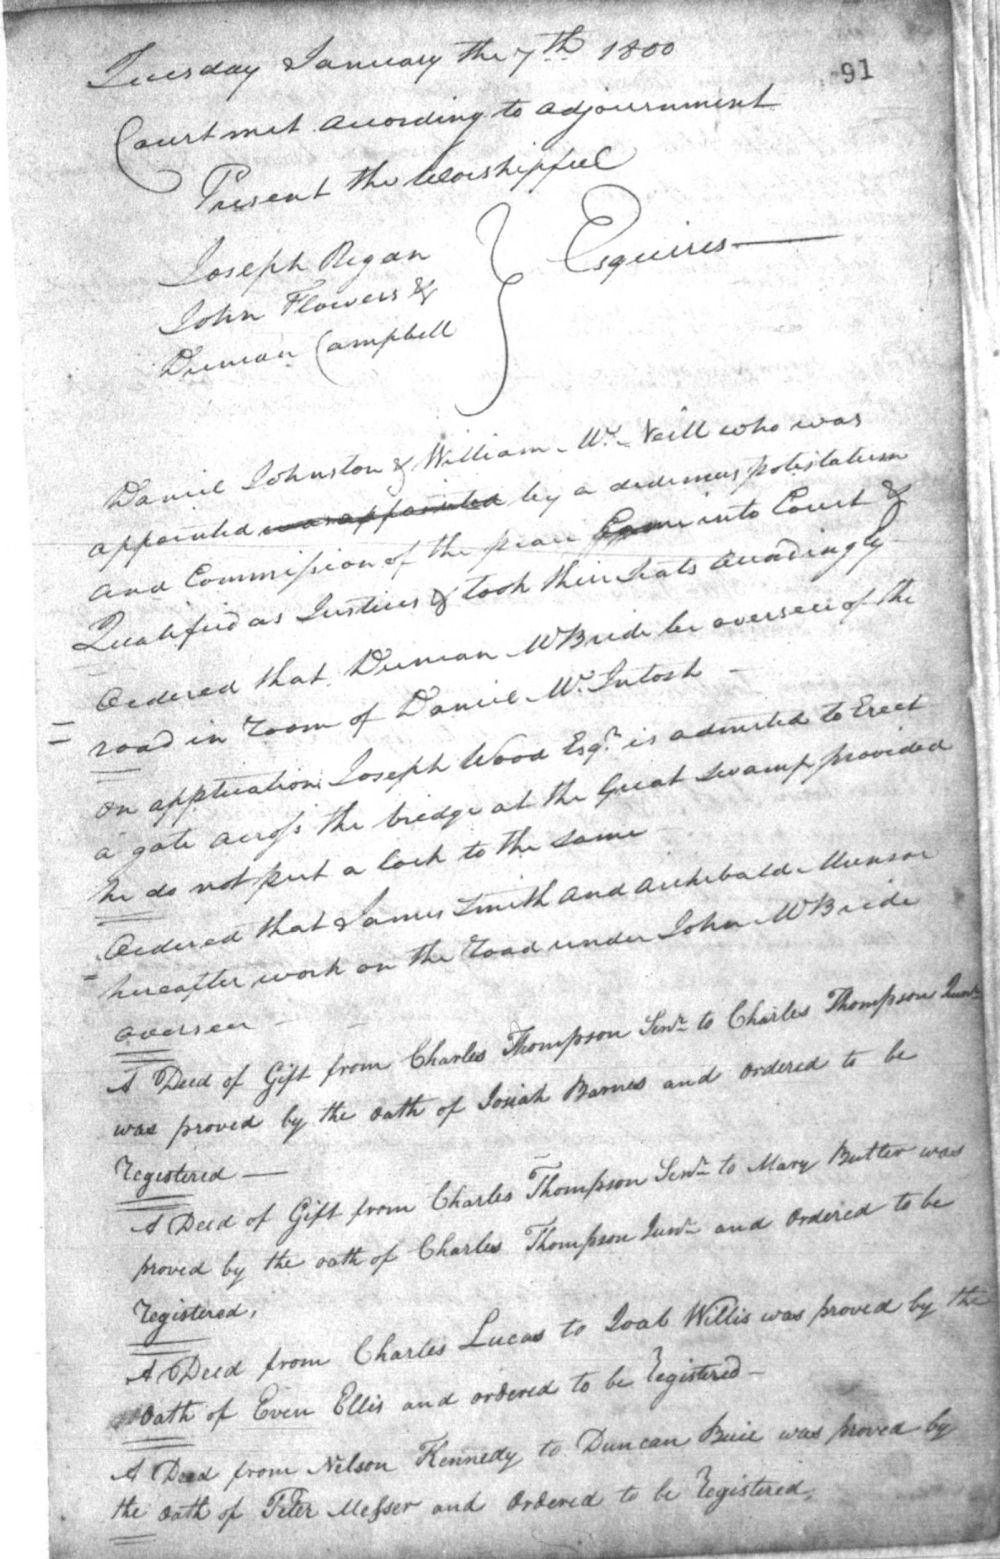 Tuesday January the 7th 1800
91
Court met according to adjournment
Present the Worshipfull
Joseph Regan
John Flowers &
Duncan Campbell
Esquires
Daniel Johnston & William McNeill who was
appointed was appointed by a dedimus potistatum
and Commission of the peace Came into Court &
Qualified as Justices & took their Seats accordingly
Ordered that Duncan McBride be overseer of the
road in room of Daniel McIntosh
on application Joseph Wood Esqr is admitted to Erect
a gate across the bridge at the Great Swamp provided
he do not put a lock to the same
Ordered that James Smith and Archibald Munroe
hereafter work on the road under John McBride
overseer
A Deed of Gift from Charles Thompson Senr to Charles Thompson Junr
was proved by the oath of Josiah Barnes and ordered to be
Registered
A Deed of Gift from Charles Thompson Senr to Mary Butter was
proved by the oath of Charles Thompson Junr and Ordered to be
Registered,
A Deed from Charles Lucas to Joab Willis was proved by the
Oath of Even Ellis and ordered to be Registered
A Deed from Nelson Kennedy to Duncan Buie was proved by
the oath of Peter Messer and Ordered to be Registered,